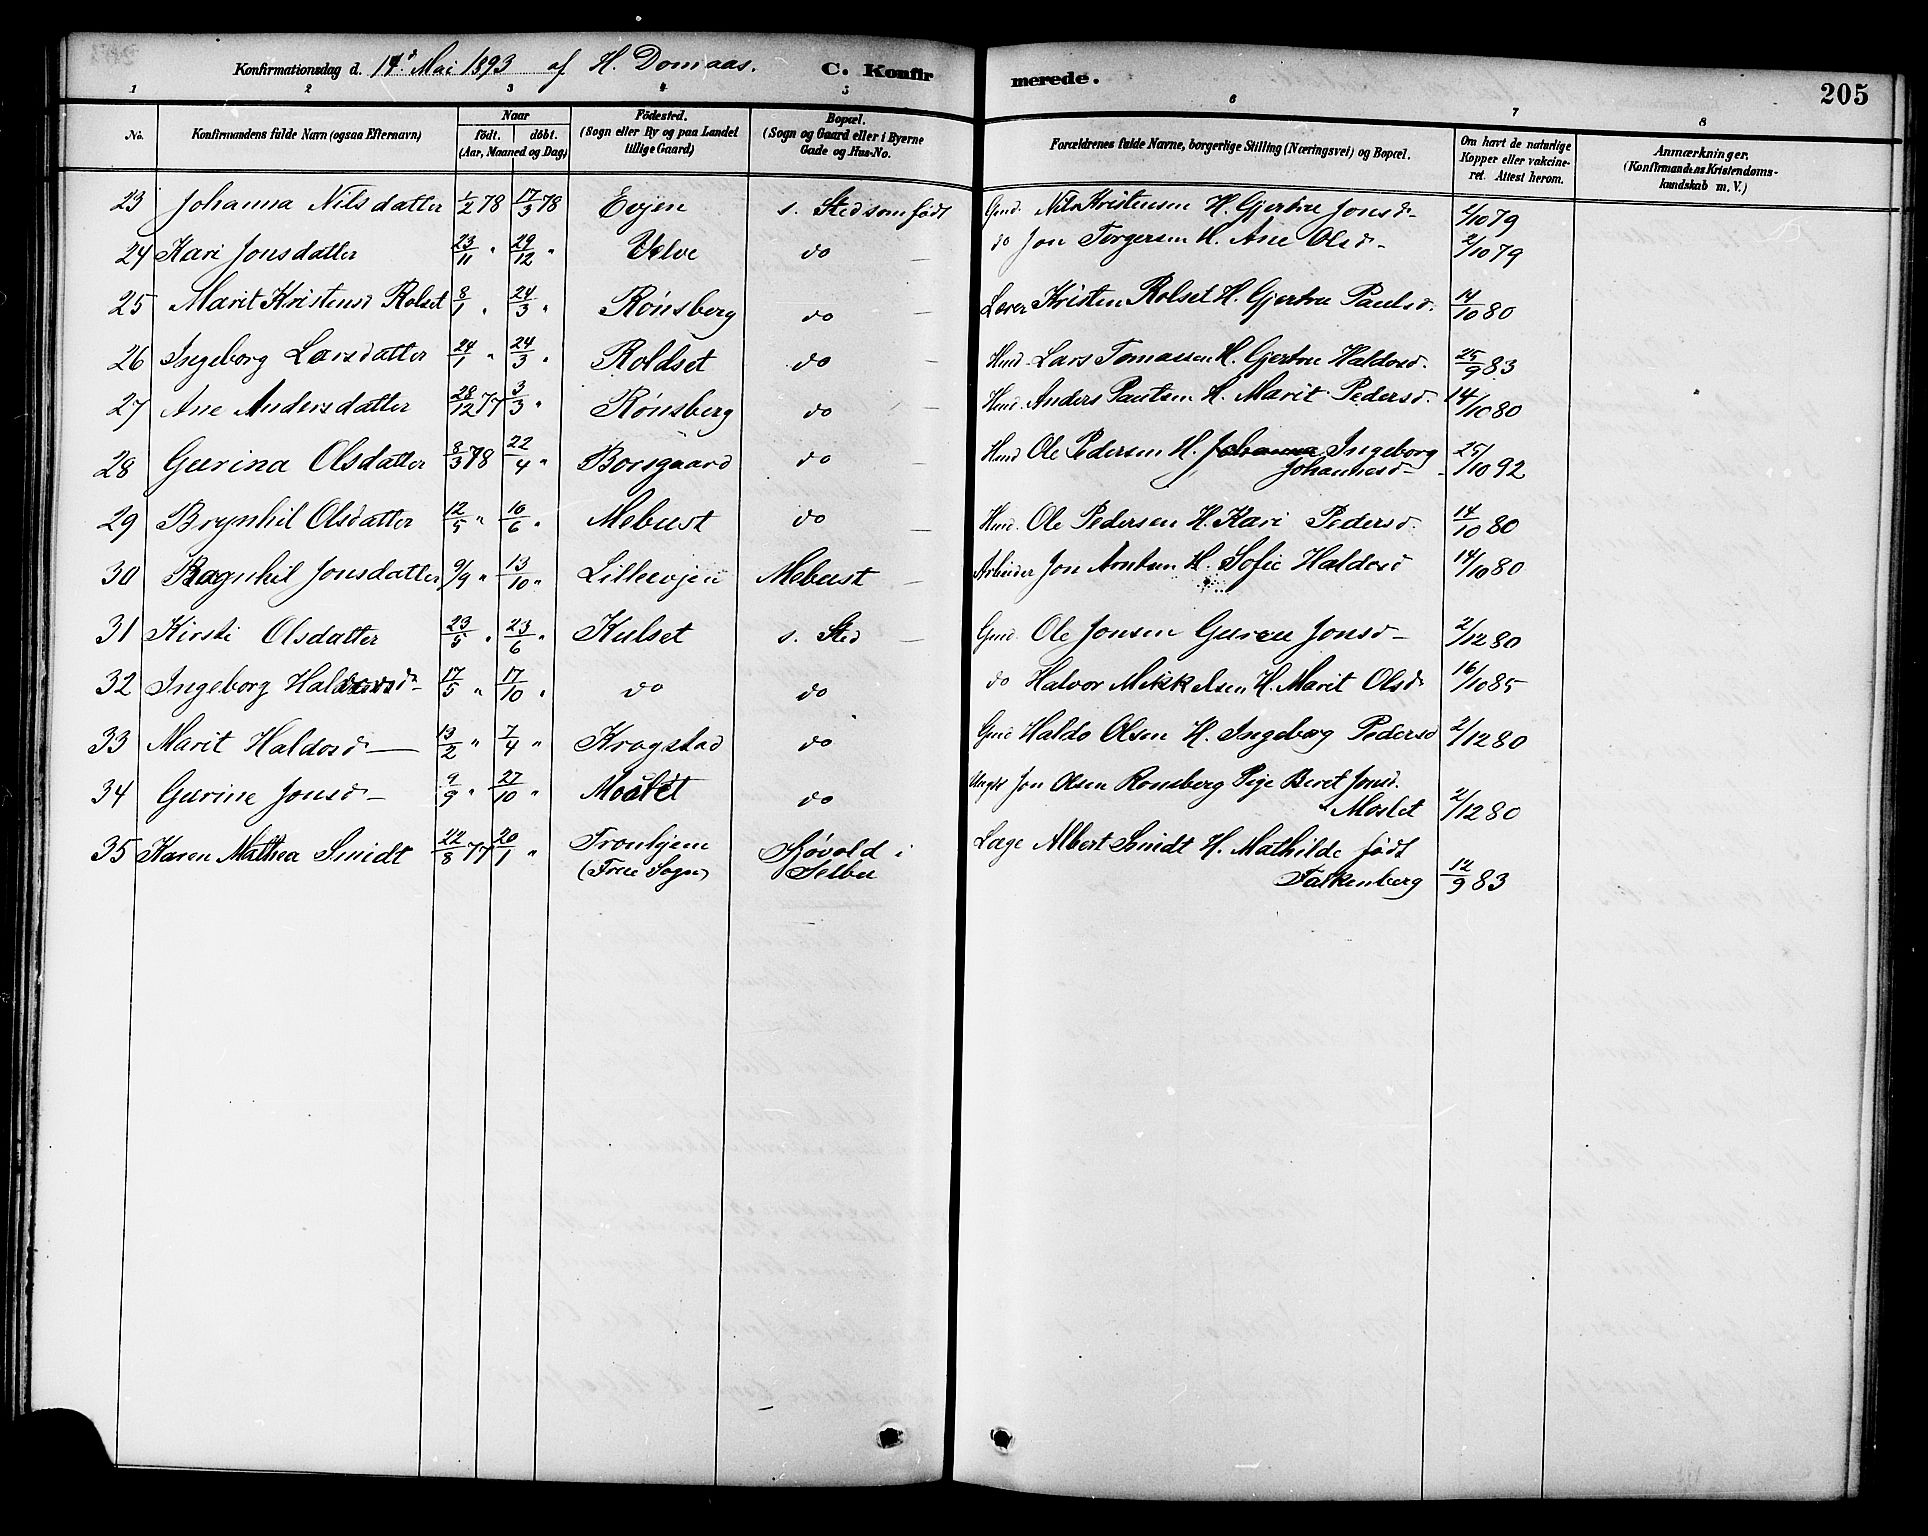 Konfirmationsdag d. 14de Mai 1893 af H. Domaas. C. Konfirmerede. 205
1 2 3 4 5 6 7 8
No. Konfirmandens fulde Navn (ogsaa Efternavn) Naar født. døbt. (Aar, Maaned og Dag) Födested. (Sogn eller By og paa Landet tillige Gaard) Bopæl. (Sogn og Gaard eller i Byerne Gade og Hus-No. Forældrenes fulde Navne, borgerlige Stilling (Næringsvei) og Bopæl. Om havt de naturlige Kopper eller vakcineret. Attest herom. Anmærkninger. (Konfirmandens Kristendomskundskab m. V.)
23 Johanna Nilsdatter 1/2 78 17/3 78 Evjen s. Sted som født Gmd. Nils Kristensen H. Gjertru Jonsd- 2/10 79
24 Kari Jonsdatter 23/11 " 29/12 " Velve do — do Jon Torgersen H. Ane Olsd- 2/10 79
25 Marit Kristensd Rolset 8/1 " 24/3 " Rønsberg do — Lærer Kristen Rolset H. Gjertru Paulsd. 14/10 80
26 Ingeborg Larsdatter 24/1 " 24/3 " Roldset do — Hmd. Lars Tomassen H. Gjertru Haldosd. 25/9 83
27 Ane Andersdatter 28/12 77 3/3 " Rønsberg do — Hmd. Anders Paulsen H. Marit Pedersd. 14/10 80
28 Gurina Olsdatter 8/3 78 22/4 " Borsgaard do — Hmd Ole Pedersen H. Johanna Ingeborg 25/10 92
Johannesd-
29 Brynhil Olsdatter 12/5 " 10/6 " Mebust do — Hmd. Ole Pedersen H. Kari Pedersd. 14/10 80
30 Ragnhil Jonsdatter 9/9 " 13/10 " Lilleevjen Mebust — Arbeider Jon Arntsen H. Sofie Haldosd 14/10 80
31 Kirsti Olsdatter 23/5 " 23/6 " Kulset s. Sted — Gmd. Ole Jonsen Guru Jonsd- 2/12 80
32 Ingeborg Haldorsd- 17/5 " 17/10 " do do do Halvor Mikkelsen H. Marit Olsd- 16/10 85
33 Marit Haldosd — 13/2 " 7/4 " Kragstad do Gmd Haldo Olsen H. Ingeborg Pedersd 2/12 80
34 Gurine Jonsd- 9/9 " 27/10 " Moslet do Ungk Jon Olsen Rønsberg Pige Beret Jonsd.
Moslet 2/12 80
35 Karen Mathea Smidt 22/8 77 20/1 " Tronhjem Sjøvold i Læge Albert Smidt H. Mathilde født
(Frue Sogn) Selbu Falkenberg 12/9 83